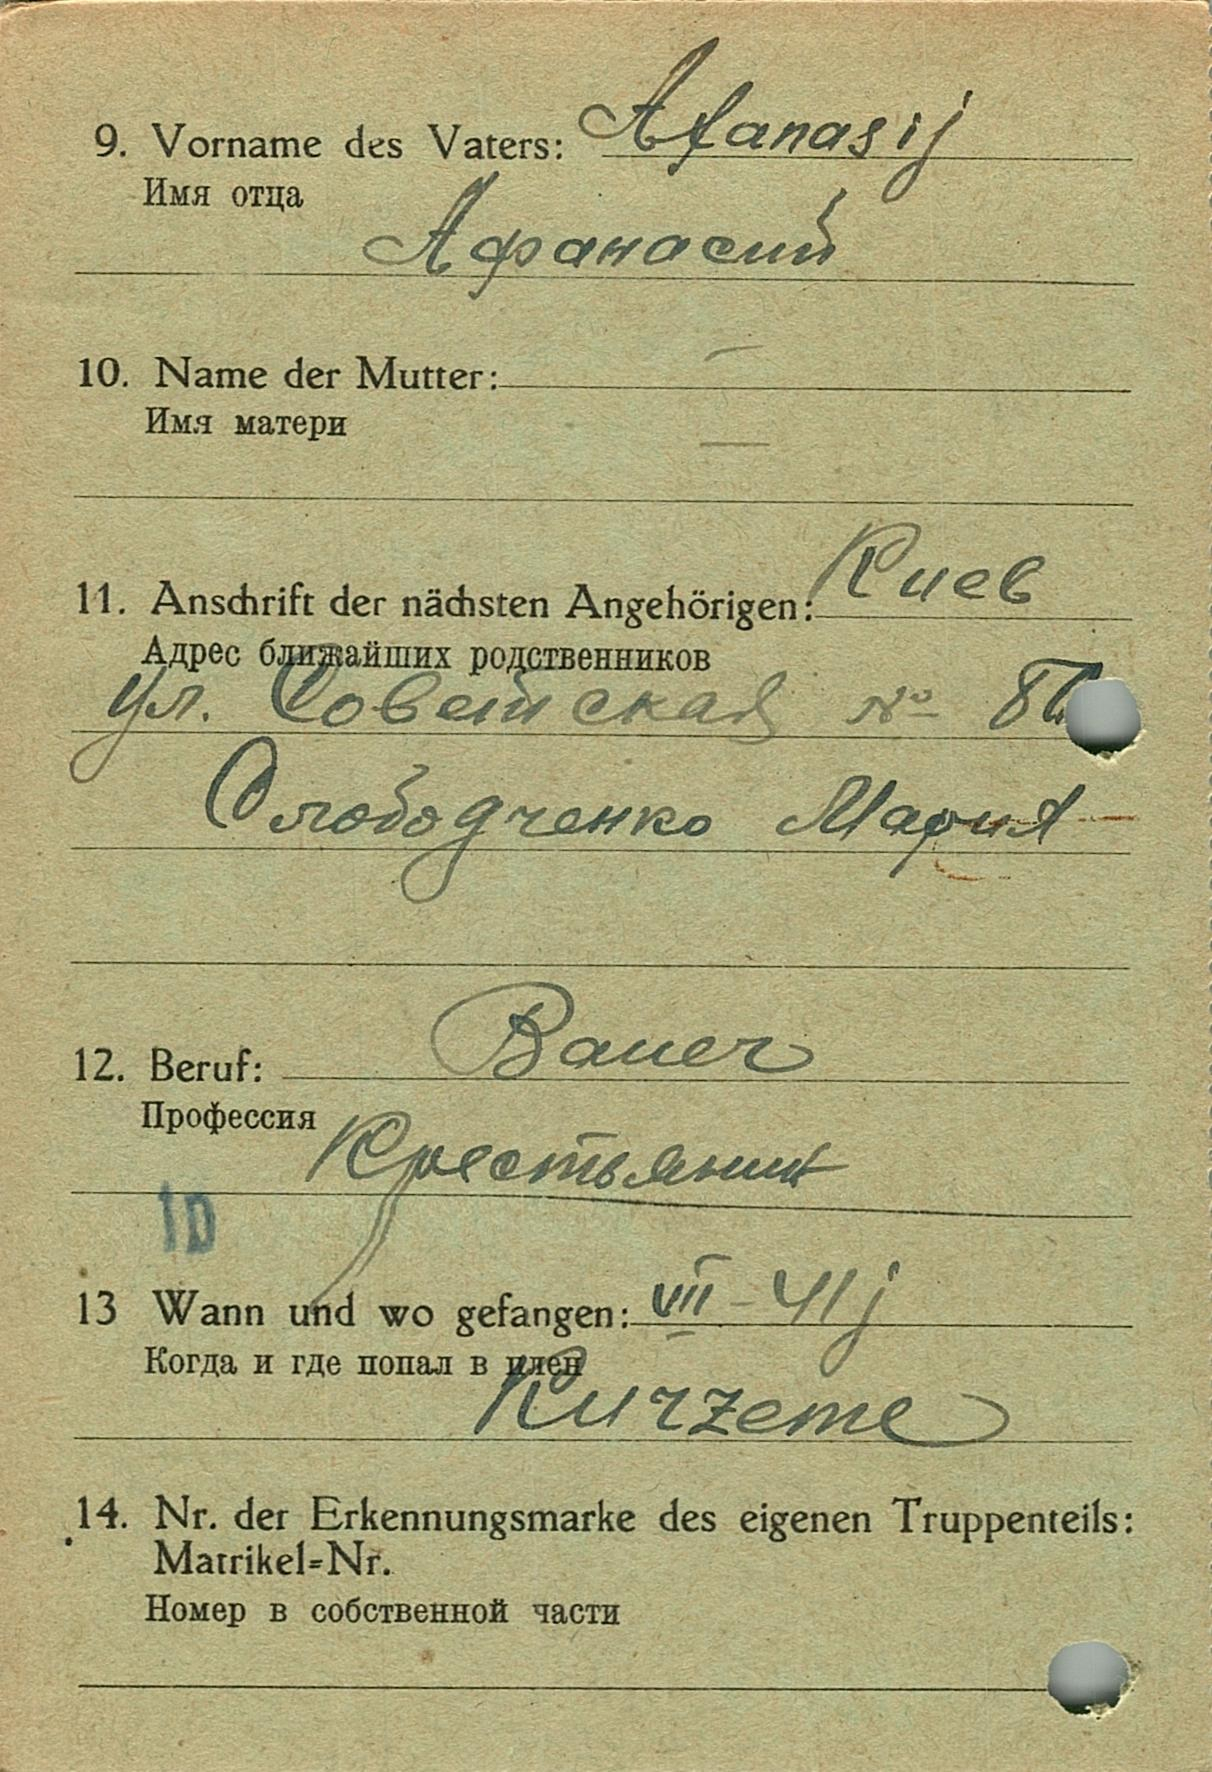 9. Vorname des Vaters: Afanasij
Имя отца
Афанасий
10. Name der Mutter: —
Имя матери
—
11. Anschrift der nächsten Angehörigen: Киев
Адрес ближайших родственников
ул. Советская №
Слободченко Мария
12. Beruf: Bauer
Профессия
Крестьянин
1D
13 Wann und wo gefangen: VII - 41 j
Когда и где попал в плен
Kurzeme
14. Nr. der Erkennungsmarke des eigenen Truppenteils:
Matrikel=Nr.
Номер в собственной части